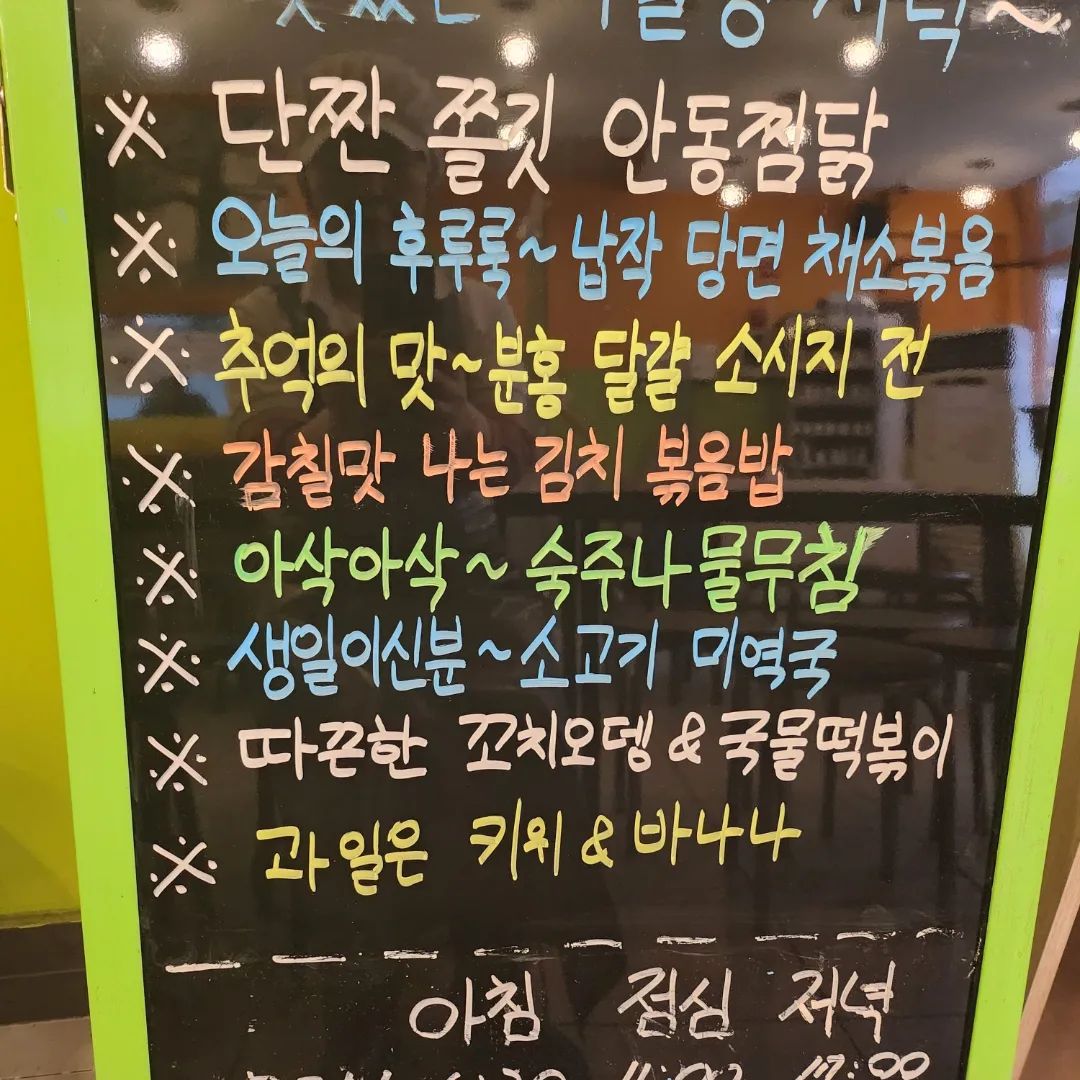 ※ 단짠 쫄깃 안동찜닭
※ 오늘의 후루룩~ 납작 당면 채소볶음
※ 추억의 맛~분홍 달걀 소시지 전
※ 감칠맛 나는 김치 볶음밥
※ 아삭아삭~ 숙주나물무침
※ 생일이신분~소고기 미역국
※ 따끈한 꼬치오뎅&국물떡볶이
※ 과일은 키위&바나나
아침 점심 저녁